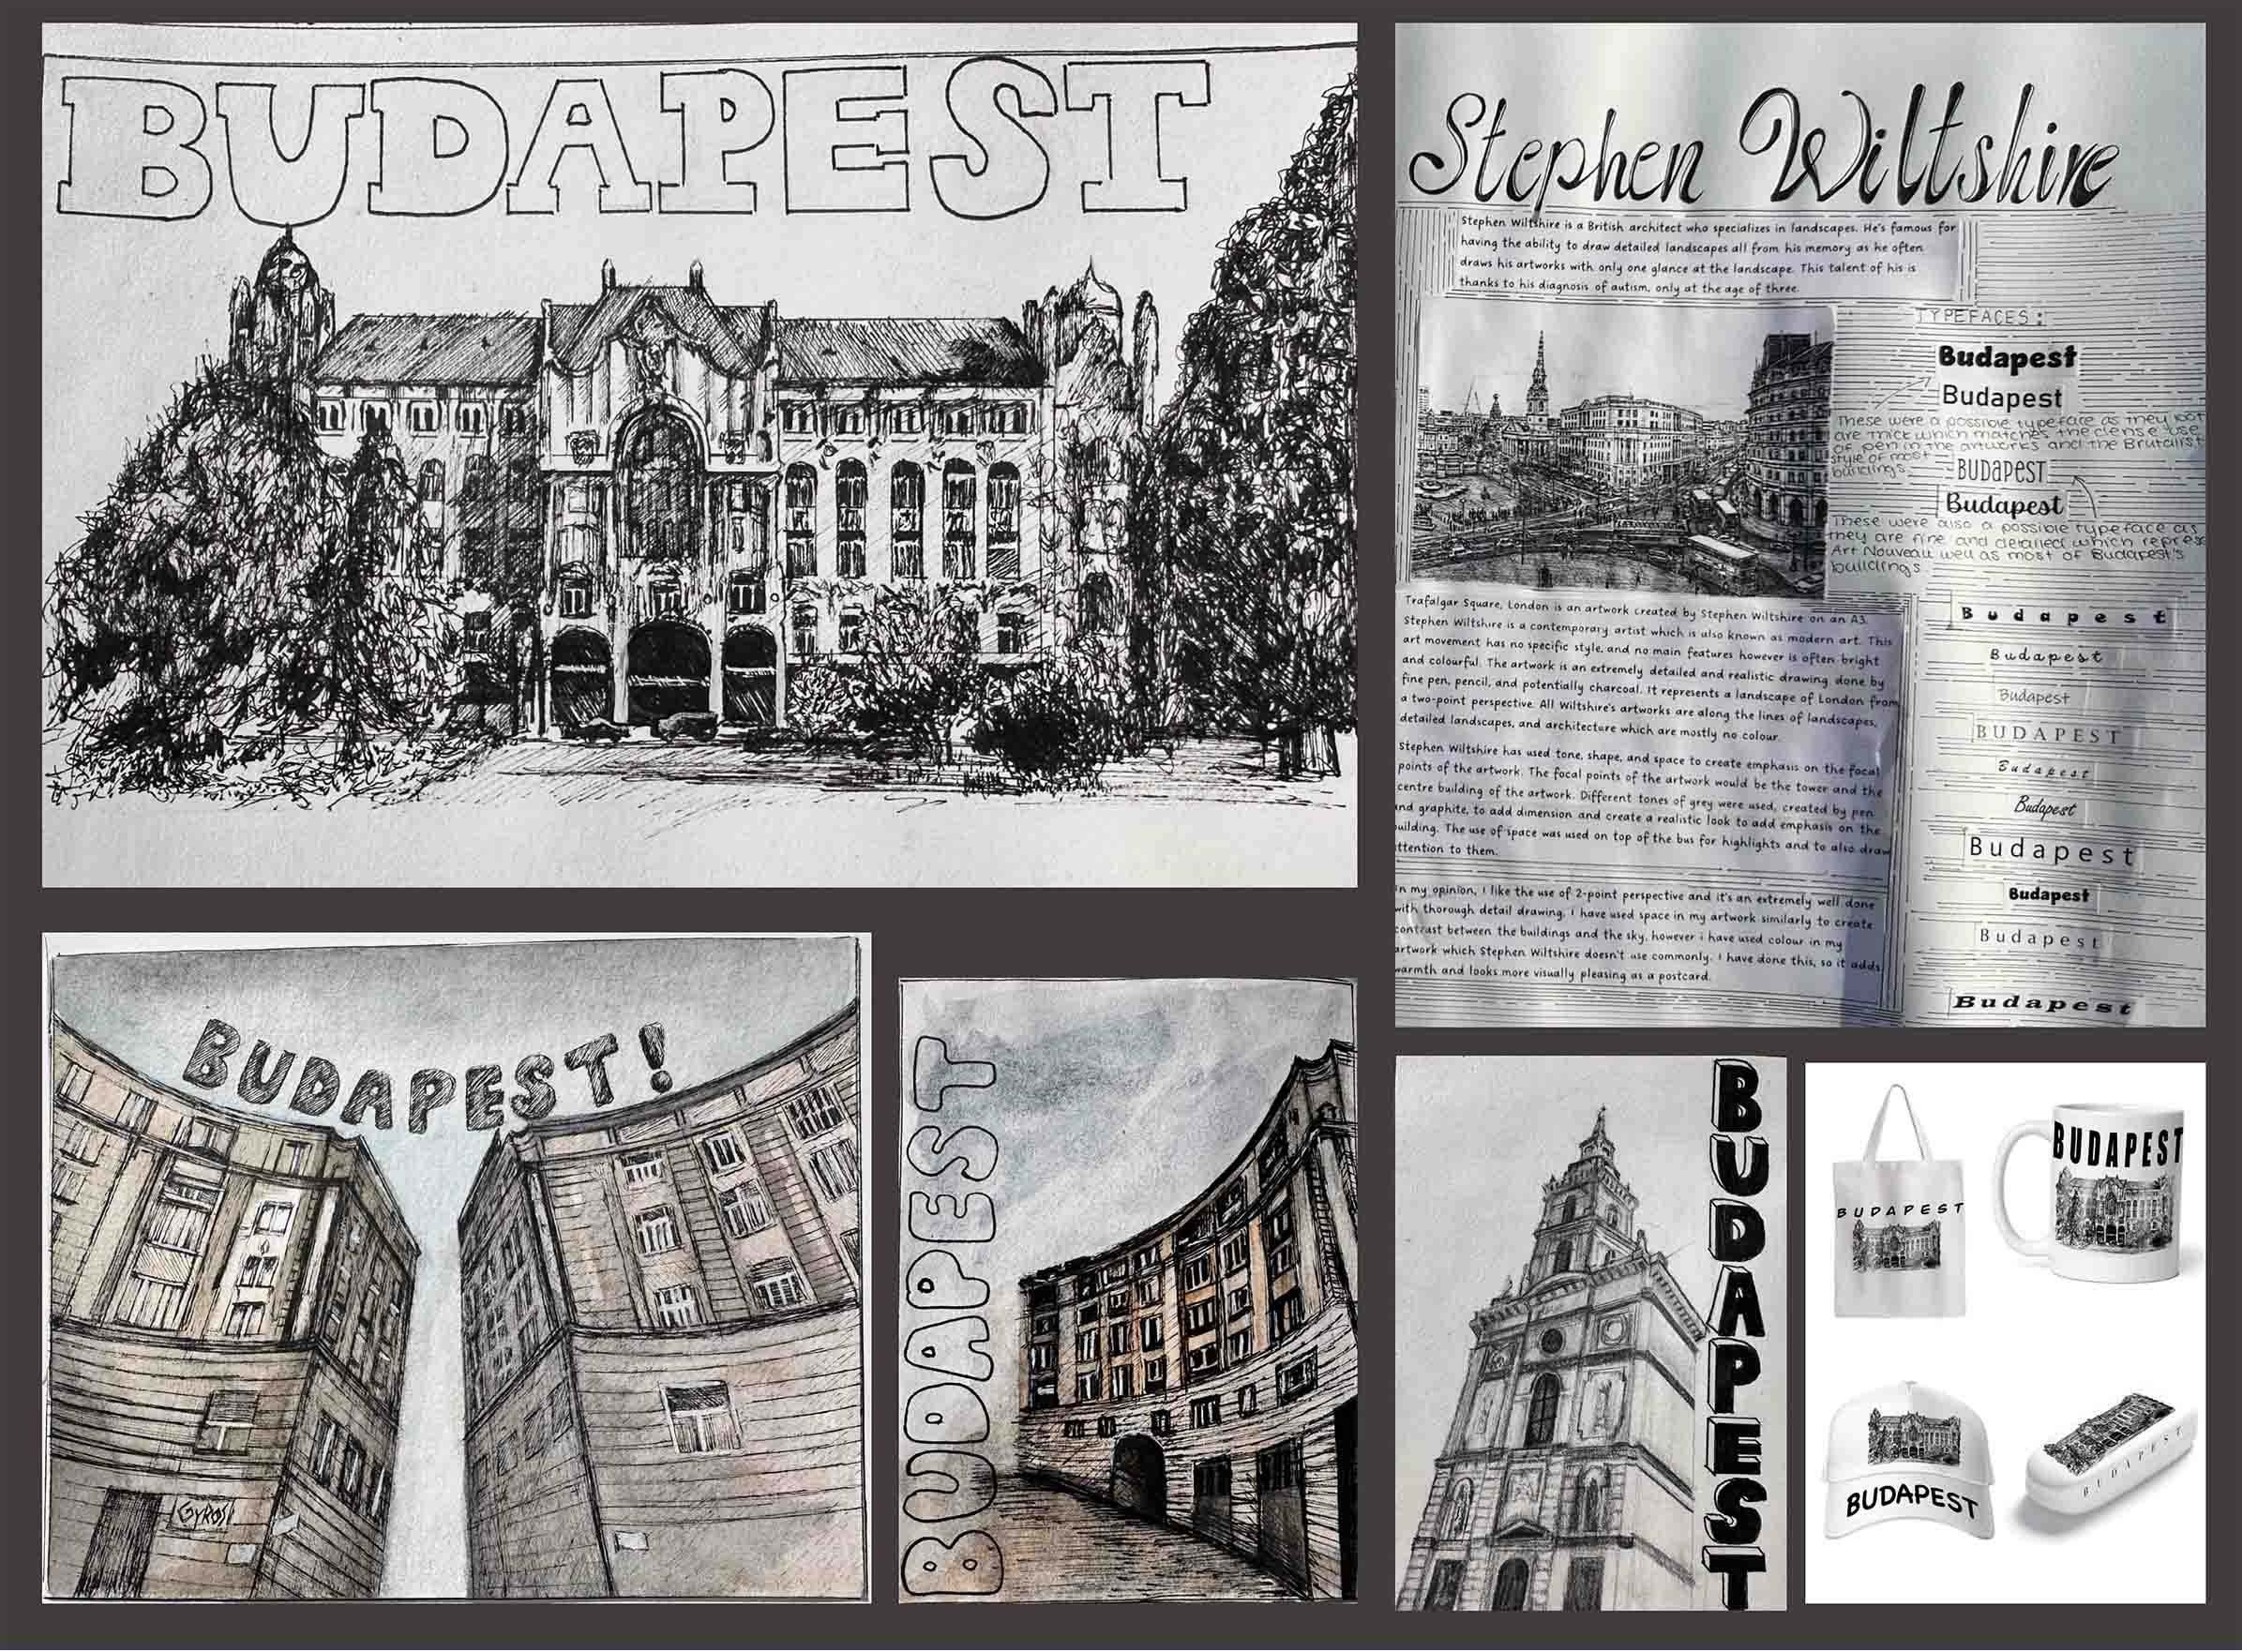 BUDAPEST
Stephen Wiltshire
Stephen Wiltshire is a British architect who specializes in landscapes. He's famous for
having the ability to draw detailed landscapes all from his memory as he often
draws his artworks with only one glance at the landscape. This talent of his is
thanks to his diagnosis of autism, only at the age of three.
TYPEFACES:
Budapest
Budapest
These were a possible typeface as they
are thick which matches the dense use
of pen in the artworks and the Brutalist
style of most
buildings.
BUDAPEST
Budapest
These were also a possible typeface as
they are fine and detailed which
Art Nouveau well as most of Budapest's
buildings
Trafalgar Square, London is an artwork created by Stephen Wiltshire on an A3.
Stephen Wiltshire is a contemporary artist which is also known as modern art. This
art movement has no specific style, and no main features however is often bright
and colourful. The artwork is an extremely detailed and realistic drawing done by
fine pen, pencil, and potentially charcoal. It represents a landscape of London from
a two-point perspective. All Wiltshire's artworks are along the lines of landscapes,
detailed landscapes, and architecture which are mostly no colour.
Stephen Wiltshire has used tone, shape, and space to create emphasis on the focal
points of the artwork. The focal points of the artwork would be the tower and the
centre building of the artwork. Different tones of grey were used, created by pen
and graphite, to add dimension and create a realistic look to add emphasis on the
uilding. The use of space was used on top of the bus for highlights and to also draw
ttention to them.
In my opinion, I like the use of 2-point perspective and it's an extremely well done
with thorough detail drawing. I have used space in my artwork similarly to create
contrast between the buildings and the sky, however i have used colour in my
artwork which Stephen Wiltshire doesn't use commonly. I have done this, so it adds
warmth and looks more visually pleasing as a postcard.
Budapest
Budapest
Budapest
BUDAPEST
Budapest
Budapest
Budapest
Budapest
Budapest
Budapest
BUDAPEST!
GYROS
BUDAPEST
BUDAPEST
BUDAPEST
BUDAPEST
BUDAPEST
BUDAPEST